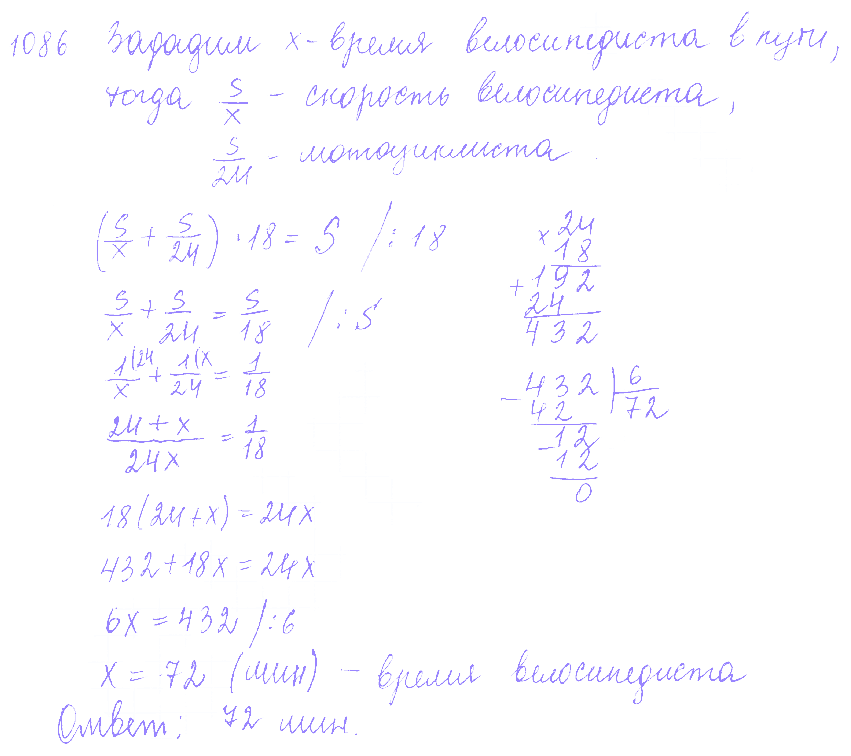 1086 Зададим x - время велосипедиста в пути,
тогда S/x - скорость велосипедиста,
S/24 - мотоциклиста.
(S/x + S/24) · 18 = S /: 18
S/x + S/24 = S/18 /: S
1(24/x + 1(x/24 = 1/18
24 + x/24x = 1/18
18(24+x) = 24x
432 + 18x = 24x
6x = 432 /: 6
x = 72 (мин) - время велосипедиста
Ответ: 72 мин.
× 24
18
+ 192
24
432
- 432 | 6
42 72
- 12
12
0